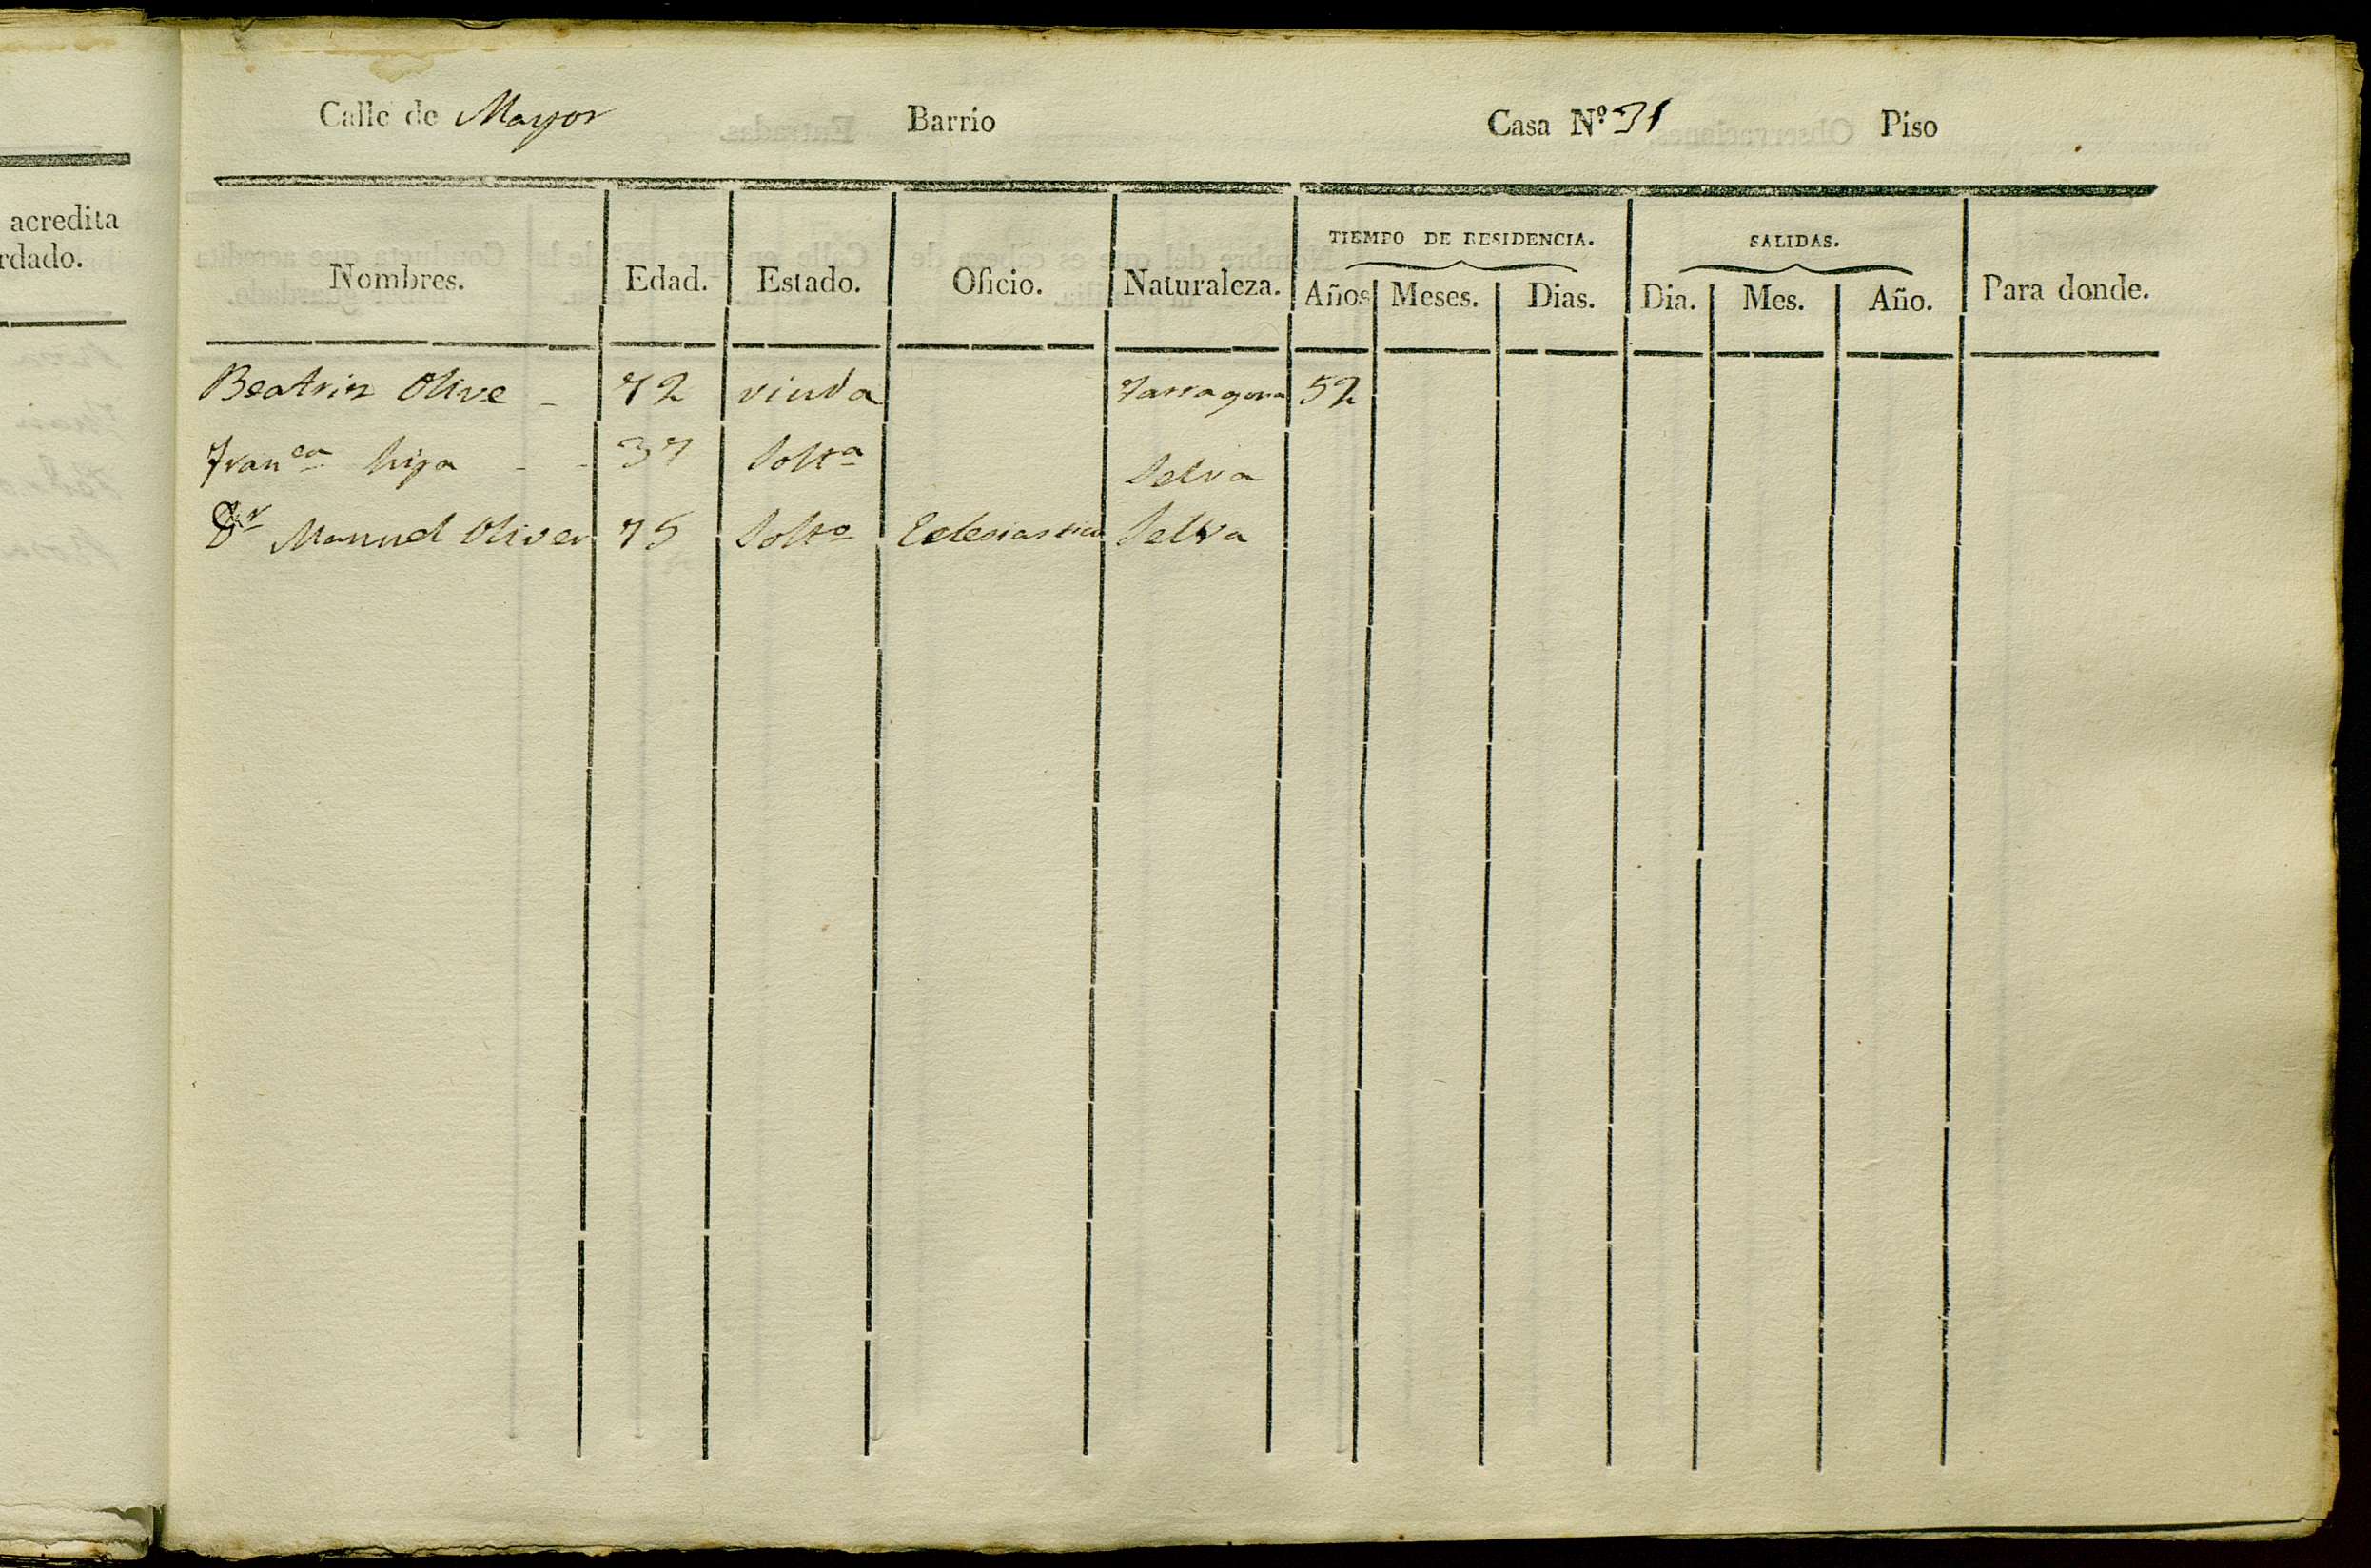 acredita
rdado.
Calle de Mayor Barrio Casa Nº 31 Piso
TIEMPO DE RESIDENCIA. SALIDAS.
Nombres. Edad. Estado. Oficio. Naturaleza. Años Meses. Dias. Dia. Mes. Año. Para donde.
Beatriz Olive - 72 viuda Tarragona 52
Franca hija - - 37 Solta Selva
Dr Manuel Oliver 75 Solto Eclesiastico Selva